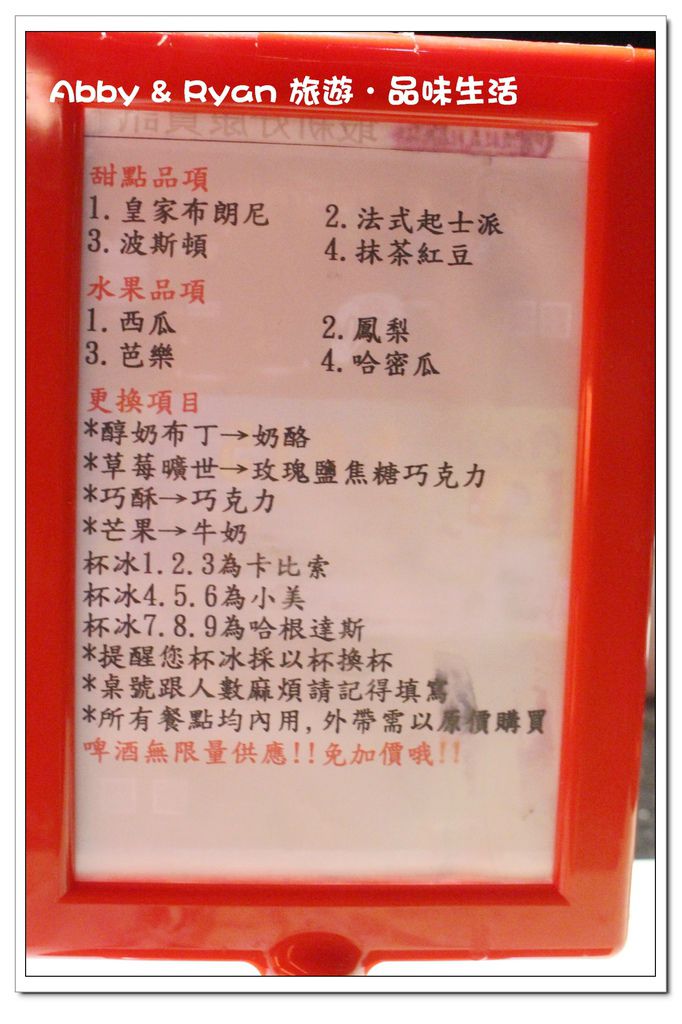 Abby & Ryan 旅遊・品味生活
甜點品項
1.皇家布朗尼 2.法式起士派
3.波斯頓 4.抹茶紅豆
水果品項
1.西瓜 2.鳳梨
3.芭樂 4.哈密瓜
更換項目
*醇奶布丁→奶酪
*草莓曠世→玫瑰鹽焦糖巧克力
*巧酥→巧克力
*芒果→牛奶
杯冰1.2.3為卡比索
杯冰4.5.6為小美
杯冰7.8.9為哈根達斯
*提醒您杯冰採以杯換杯
*桌號跟人數麻煩請記得填寫
*所有餐點均內用,外帶需以原價購買
啤酒無限量供應!!免加價哦!!